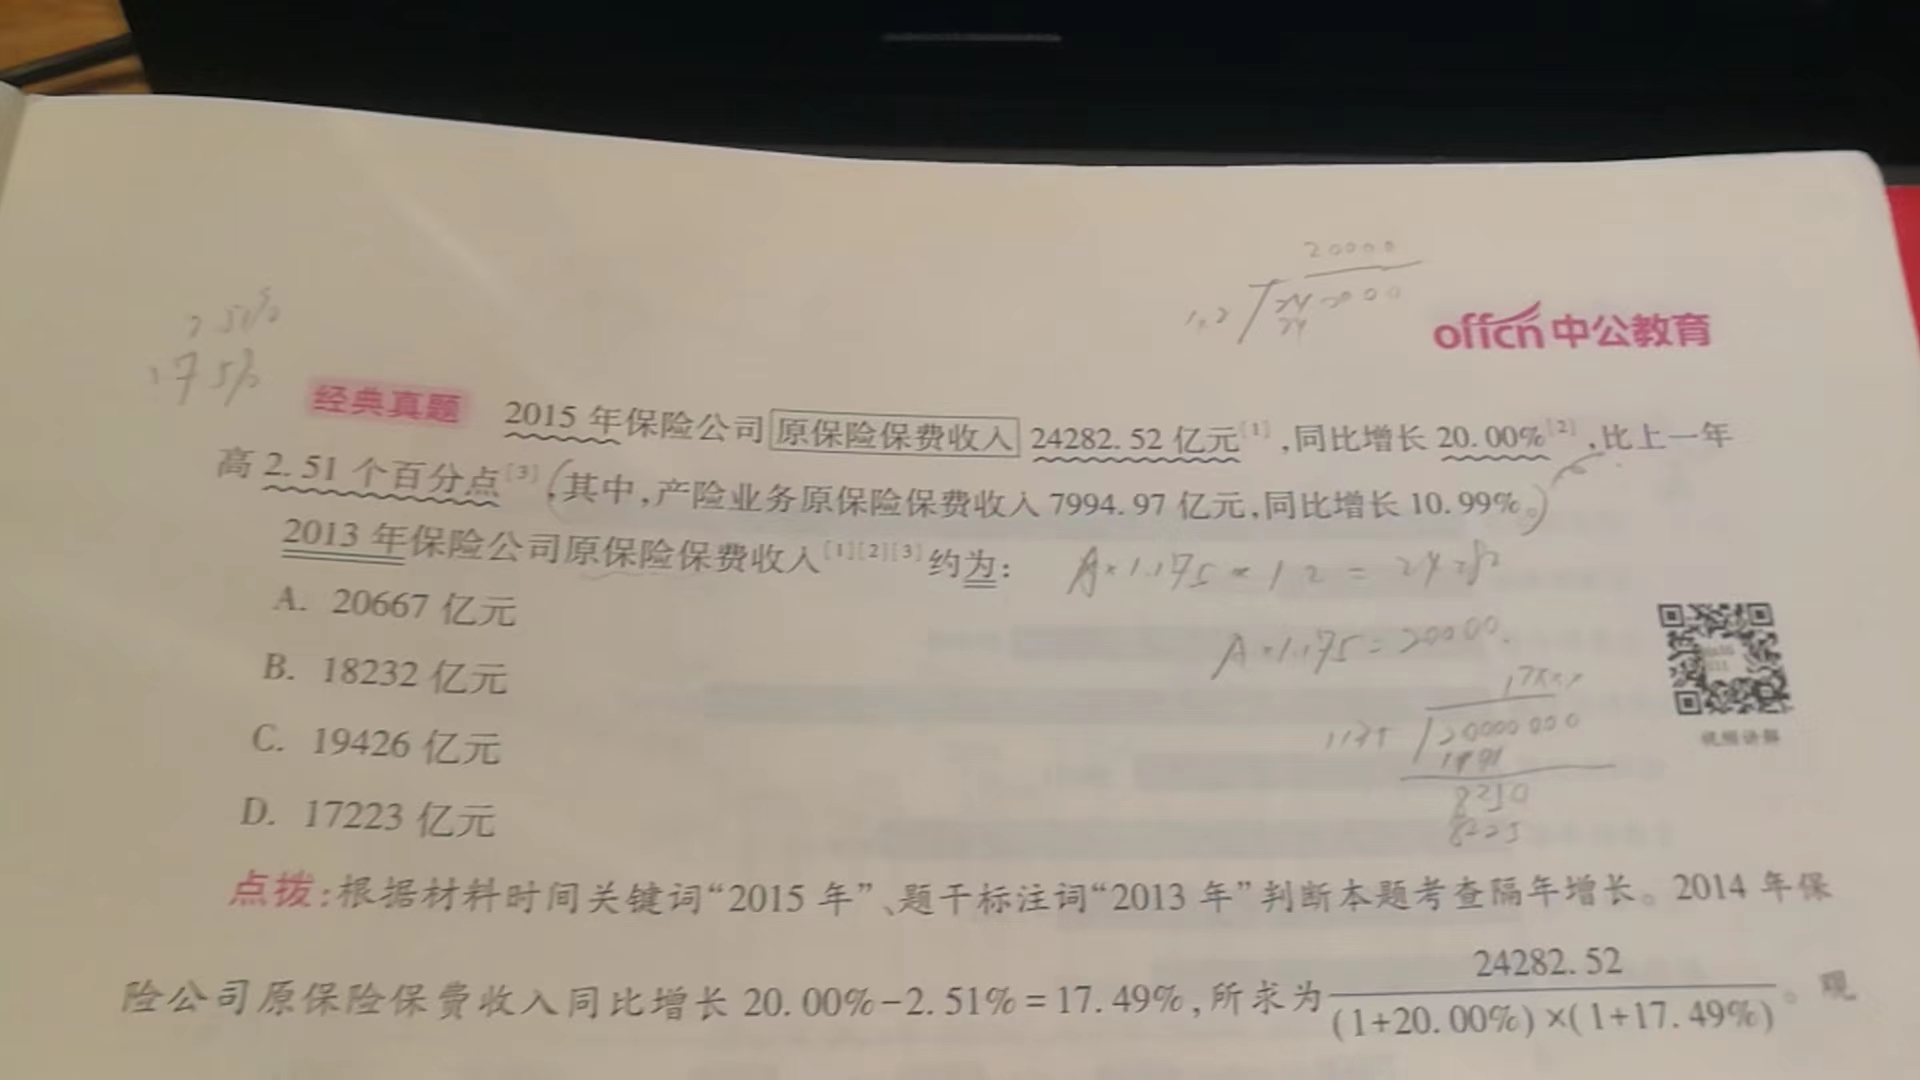 20000
1.2 24 0000
24
2.51%
17.5%
offcn中公教育
经典真题 2015年保险公司原保险保费收入24282.52亿元[1],同比增长20.00%[2],比上一年
高2.51个百分点[3](其中,产险业务原保险保费收入7994.97亿元,同比增长10.99%。)
2013年保险公司原保险保费收入[1][2][3]约为:
A×1.175×1.2=24282
A. 20667亿元
A×1.175=20000.
B. 18232亿元
1175 20000000
视频讲解
C. 19426亿元
8250
8225
D. 17223亿元
点拨:根据材料时间关键词“2015年”、题干标注词“2013年”判断本题考查隔年增长。2014年保
险公司原保险保费收入同比增长20.00%-2.51%=17.49%,所求为24282.52/(1+20.00%)×(1+17.49%)。观